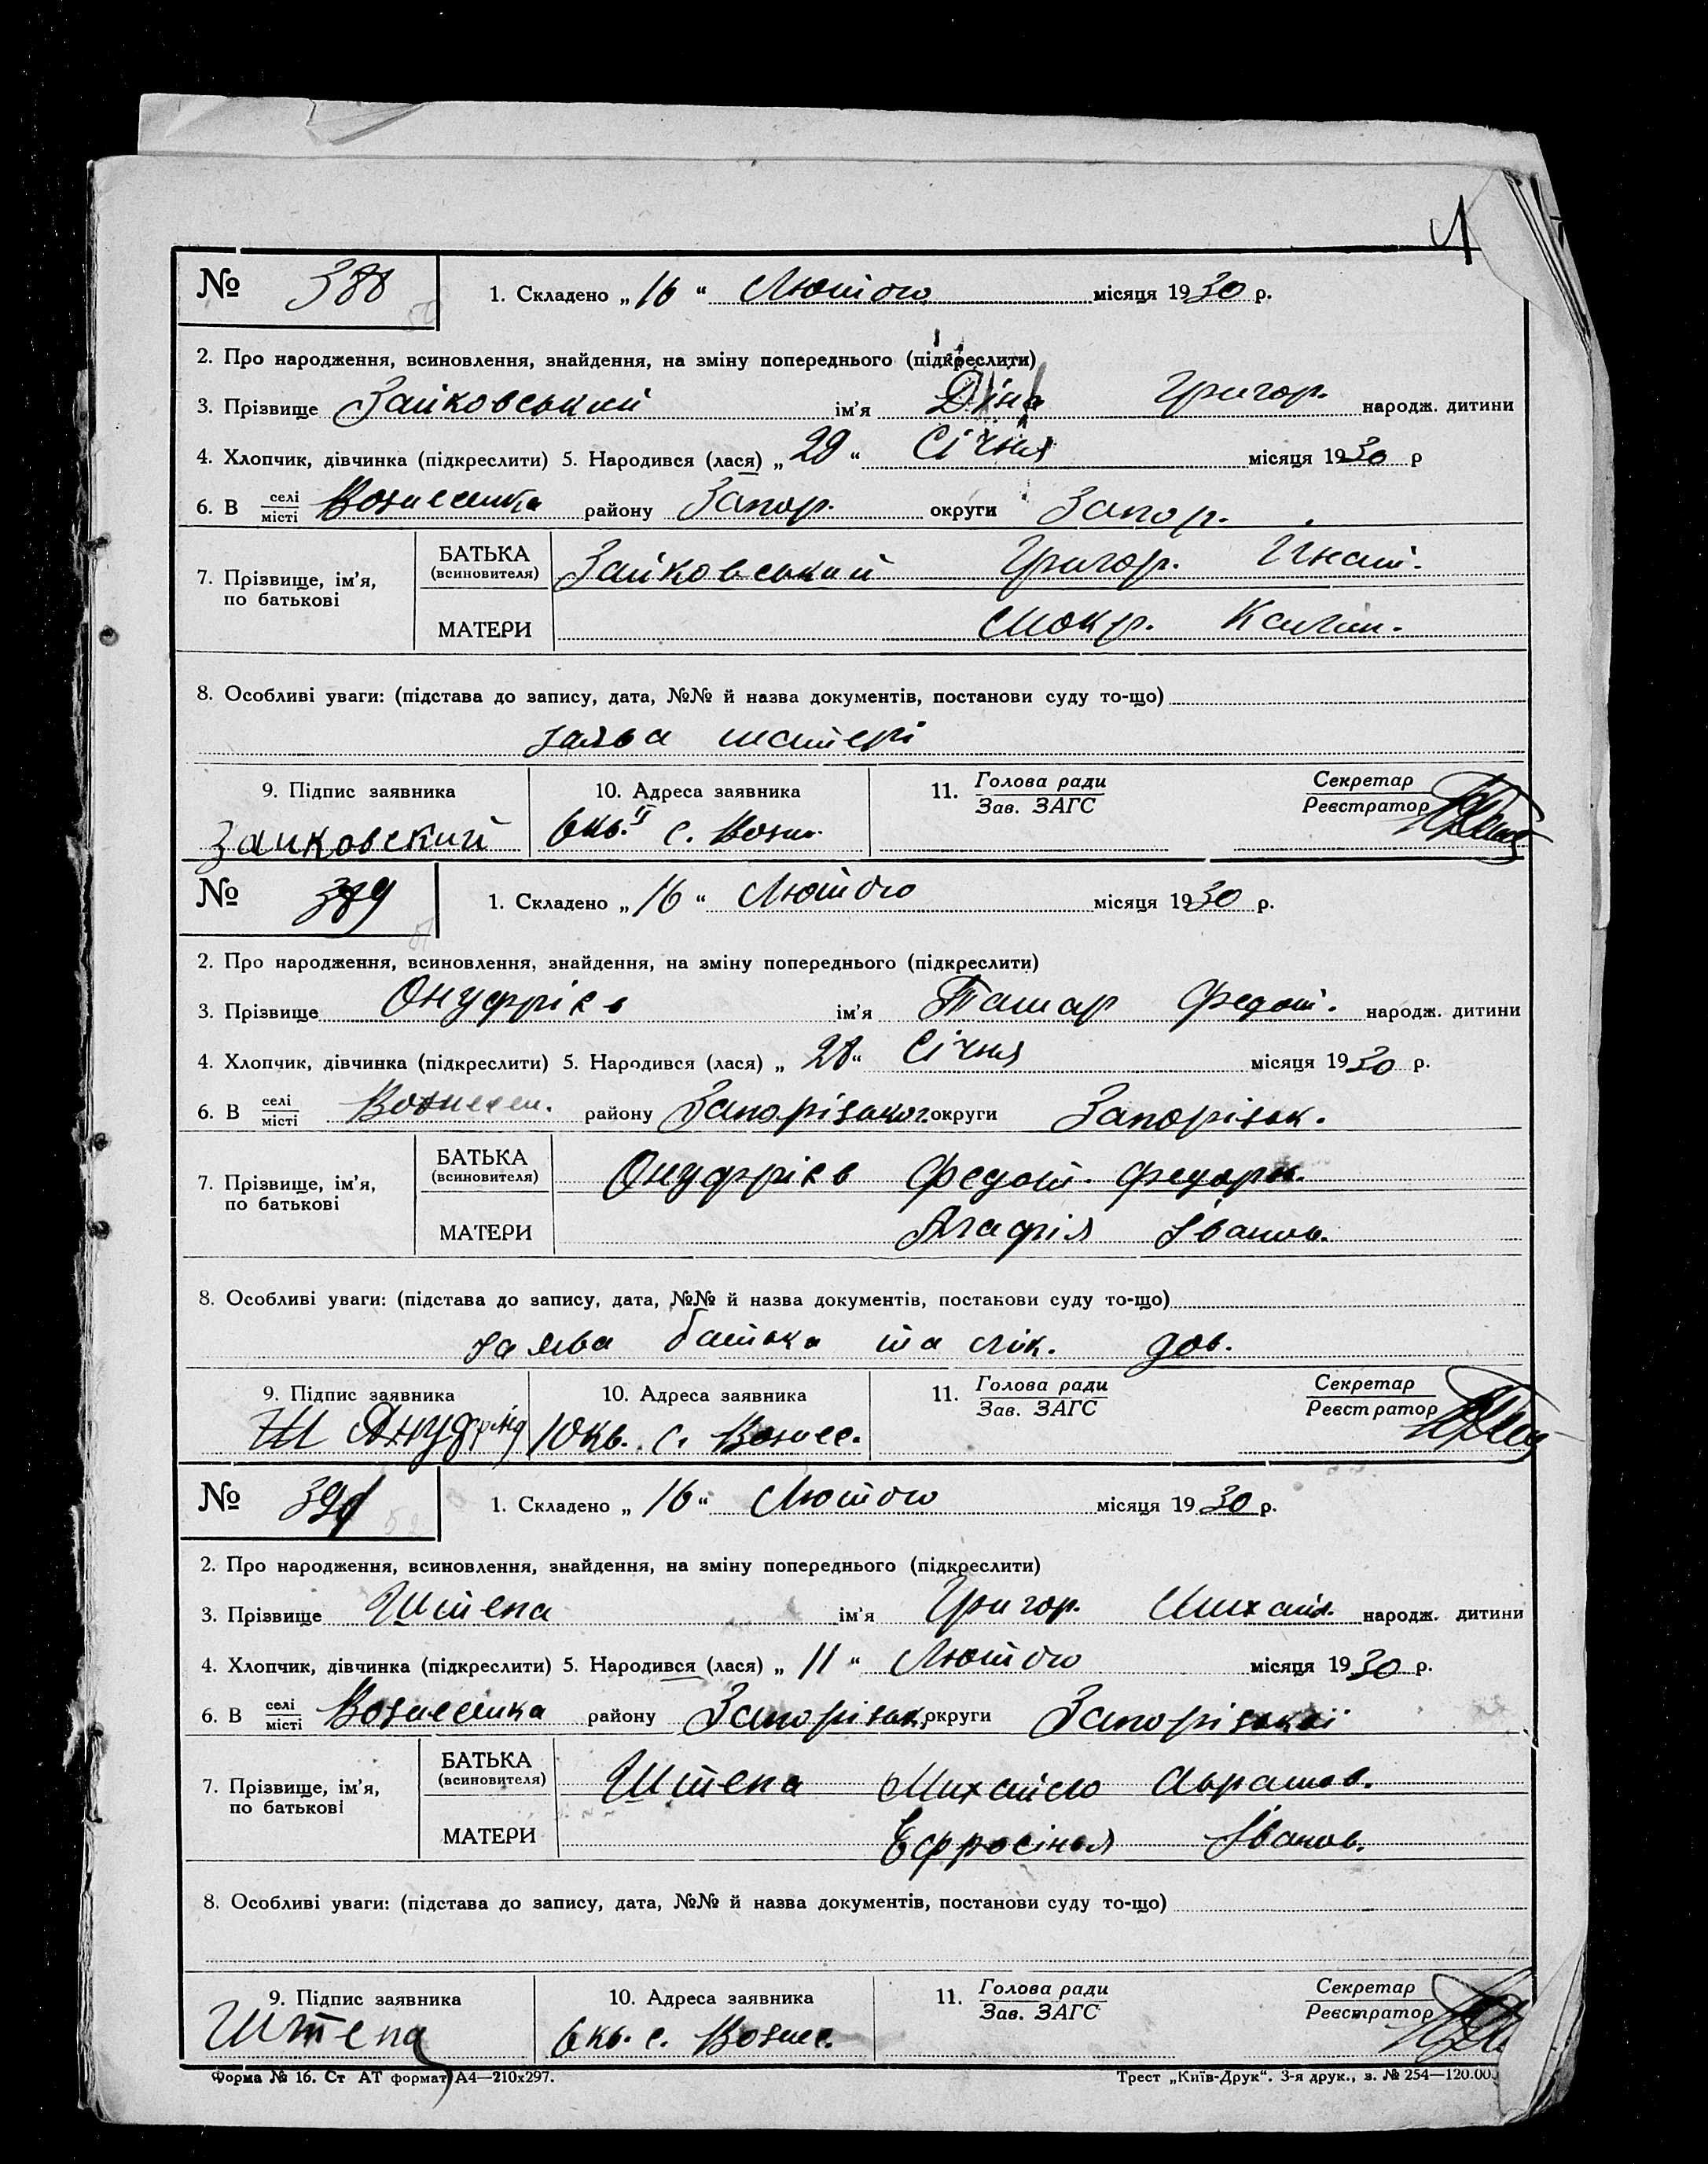 № 388 1. Складено „16“ Лютого місяця 1930 р.
2. Про народження, всиновлення, знайдення, на зміну попереднього (підкреслити)
3. Прізвище Зайковський ім'я Діна Григор. народж. дитини
4. Хлопчик, дівчинка (підкреслити) 5. Народився (лася) „29“ Січня місяця 1930 р
6. В селі місті Вознесенка району Запор. округи Запор.
7. Прізвище, ім'я, по батькові
БАТЬКА (всиновителя) Зайковський Григор. Игнат.
МАТЕРИ Мокр. Калин.
8. Особливі уваги: (підстава до запису, дата, №№ й назва документів, постанови суду то-що)
заява матері
9. Підпис заявника 10. Адреса заявника 11. Голова ради Зав. ЗАГС Секретар Реєстратор
Зайковский 6 кв. с. Возн.
№ 389 1. Складено „16“ Лютого місяця 1930 р.
2. Про народження, всиновлення, знайдення, на зміну попереднього (підкреслити)
3. Прізвище Онуфрієв ім'я Тамар Федот. народж. дитини
4. Хлопчик, дівчинка (підкреслити) 5. Народився (лася) „28“ Січня місяця 1930 р.
6. В селі місті Вознесен. району Запорізьког. округи Запорізьк.
7. Прізвище, ім'я, по батькові
БАТЬКА (всиновителя) Онуфрієв Федот. Федорів.
МАТЕРИ Агафія Іванов.
8. Особливі уваги: (підстава до запису, дата, №№ й назва документів, постанови суду то-що)
заява батька та лік. дов.
9. Підпис заявника 10. Адреса заявника 11. Голова ради Зав. ЗАГС Секретар Реєстратор
10 кв. с. Вознес.
№ 390 1. Складено „16“ Лютого місяця 1930 р.
2. Про народження, всиновлення, знайдення, на зміну попереднього (підкреслити)
3. Прізвище Штепа ім'я Григор. Михайл. народж. дитини
4. Хлопчик, дівчинка (підкреслити) 5. Народився (лася) „11“ Лютого місяця 1930 р.
6. В селі місті Вознесенка району Запорізьк. округи Запорізької
7. Прізвище, ім'я, по батькові
БАТЬКА (всиновителя) Штепа Михайло Аврамов.
МАТЕРИ Ефросінья Іванов.
8. Особливі уваги: (підстава до запису, дата, №№ й назва документів, постанови суду то-що)
9. Підпис заявника 10. Адреса заявника 11. Голова ради Зав. ЗАГС Секретар Реєстратор
Штепа 6 кв. с. Вознес.
Форма № 16. Ст АТ формат А4—210x297. Трест „Київ-Друк“. 3-я друк., з. № 254—120.00